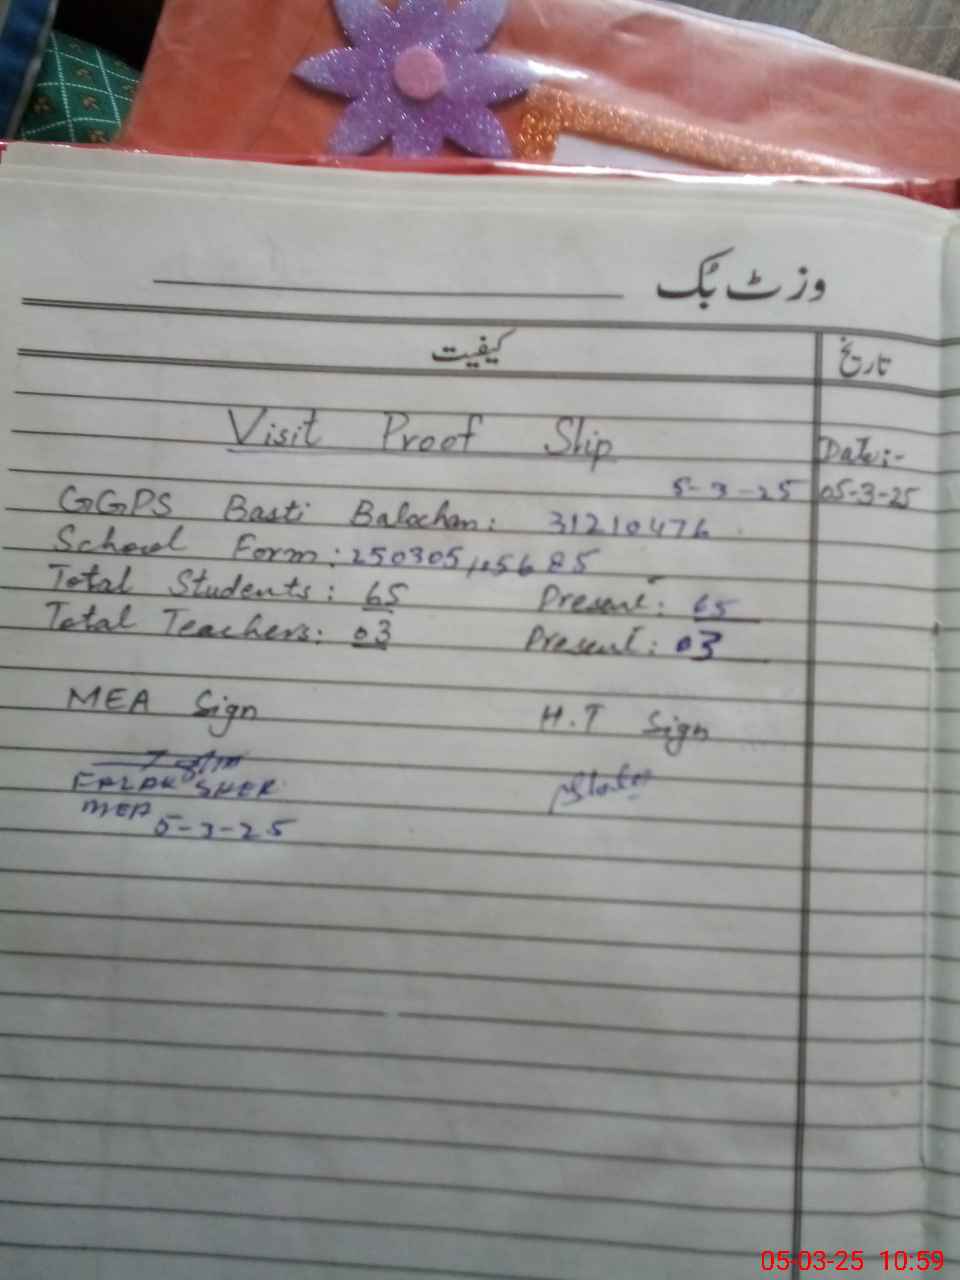 وزٹ بُک
کیفیت
تاریخ
Visit Proof Slip
Date:-
5-3-25
05-3-25
GGPS Basti Balochan: 31210476
School Form: 250305105685
Total Students: 65 Present: 65
Total Teachers: 03 Present: 03
MEA Sign H.T Sign
FALAK SHER
MEA
5-3-25
05-03-25 10:59